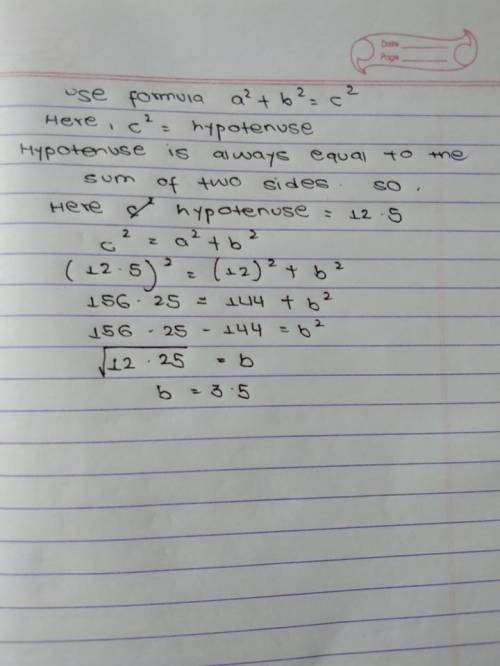 Date
Page
Use formula a² + b² = c²
Here, c² = hypotenuse
Hypotenuse is always equal to the
sum of two sides. so,
Here hypotenuse = 12.5
c² = a² + b²
(12.5)² = (12)² + b²
156.25 = 144 + b²
156.25 - 144 = b²
√12.25 = b
b = 3.5